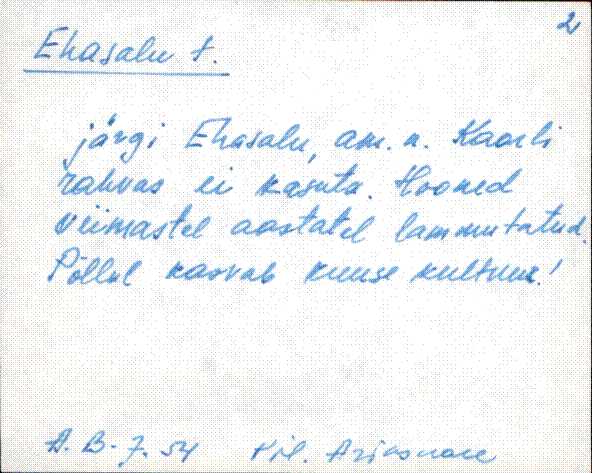 2
Ehasalu t.
järgi Ehasalu, am. n. Kaarli
rahvas ei kasuta. Hooned
viimastel aastatel lammutatud.
Põllul kasvab kuuse kultuur!
A. B. 7. 54 Kil.